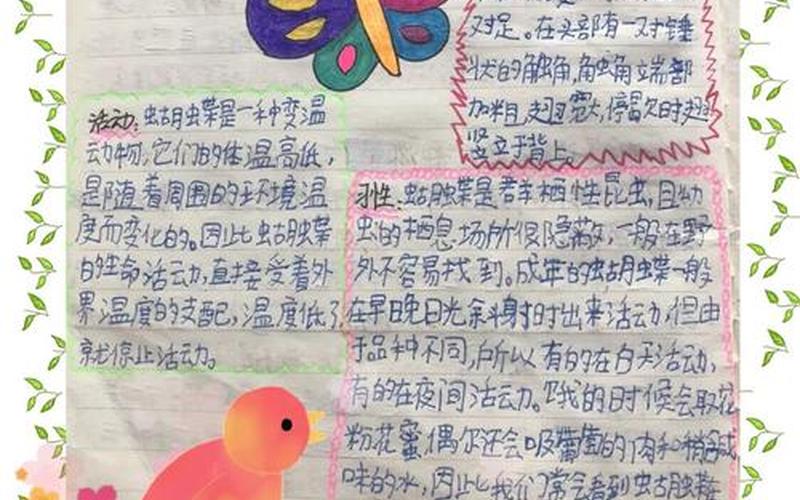 对足。在头部有一对锤
状的触角,触角端部
加粗,翅宽大,停歇时翅
竖立于背上。
活动:蝴蝶是一种变温
动物,它们的体温高低,
是随着周围的环境温
度而变化的。因此蝴蝶
的生命活动,直接受着外
界温度的支配,温度低了
就停止活动。
习性:蝴蝶是群栖性昆虫,且幼
虫的栖息场所很隐蔽,一般在野
外不容易找到。成年的蝴蝶一般
在早晚日光斜射时出来活动,但由
于品种不同,所以有的在白天活动,
有的在夜间活动。饿的时候会取花
粉花蜜,偶尔还会吸葡萄的肉和稍咸
味的水,因此我们常会看到蝴蝶